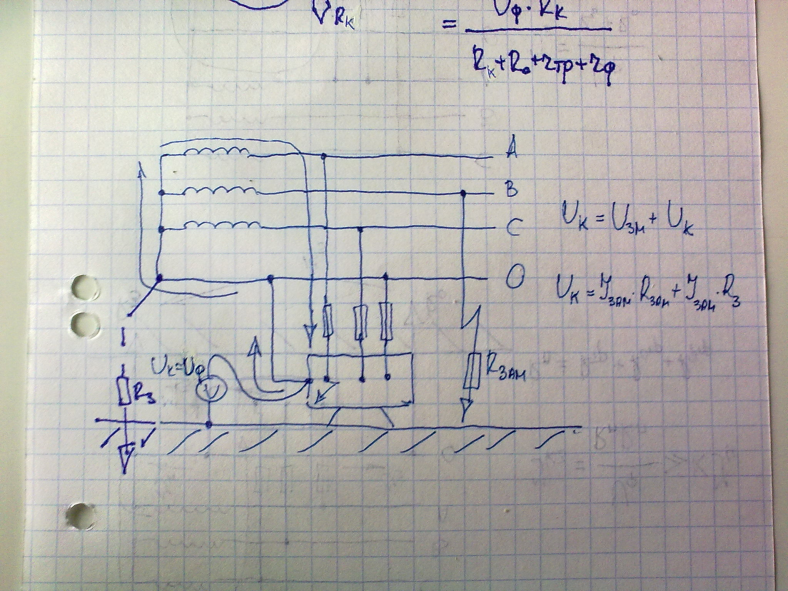 R_K
= U_ф · R_K
R_K + R_0 + r_тр + r_ф
A
B
C
O
U_K = U_ЗМ + U_K
U_K = I_ЗАМ · R_ЗАМ + I_ЗАМ · R_З
U_K = U_ф
V
R_З
R_ЗАМ